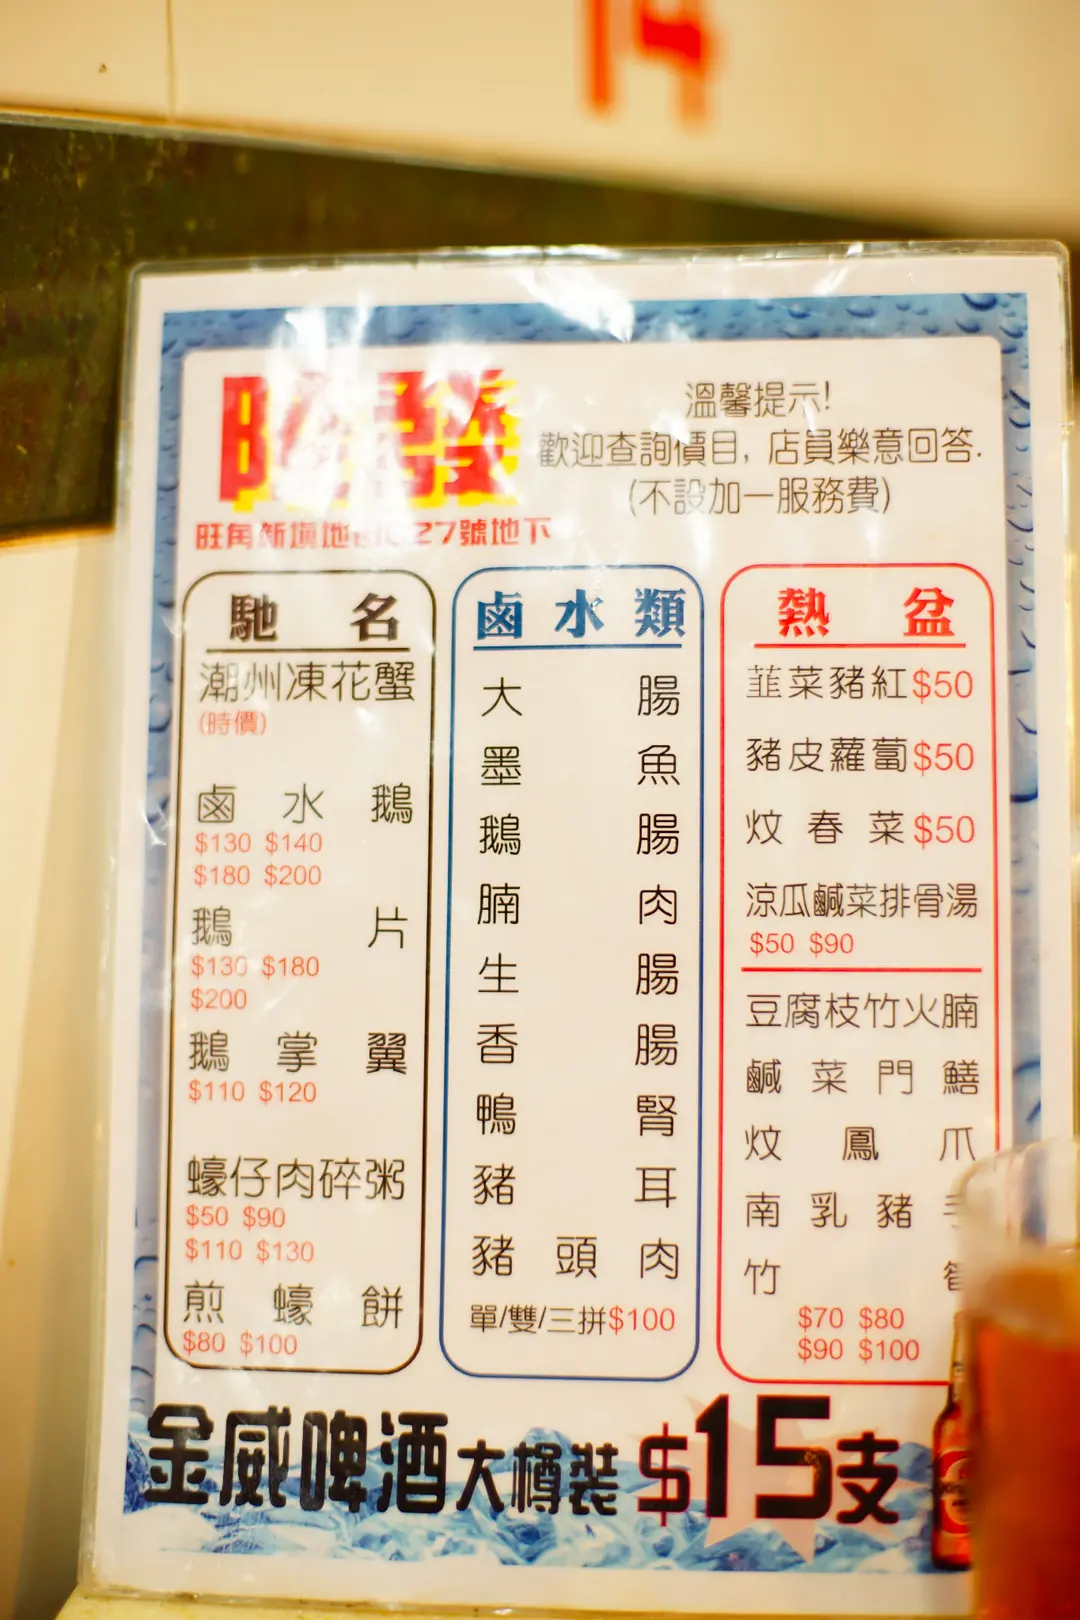 14
發
溫馨提示!
歡迎查詢價目, 店員樂意回答.
(不設加一服務費)
旺角新填地 27號地下
馳名
潮州凍花蟹
(時價)
鹵水鵝
$130 $140
$180 $200
鵝片
$130 $180
$200
鵝掌翼
$110 $120
蠔仔肉碎粥
$50 $90
$110 $130
煎蠔餅
$80 $100
鹵水類
大腸
墨魚
鵝腸
腩肉
生腸
香腸
鴨腎
豬耳
豬頭肉
單/雙/三拼$100
熱盆
韮菜豬紅$50
豬皮蘿蔔$50
炆春菜$50
涼瓜鹹菜排骨湯
$50 $90
豆腐枝竹火腩
鹹菜門鱔
炆鳳爪
南乳豬
竹
$70 $80
$90 $100
金威啤酒大樽裝 $15支